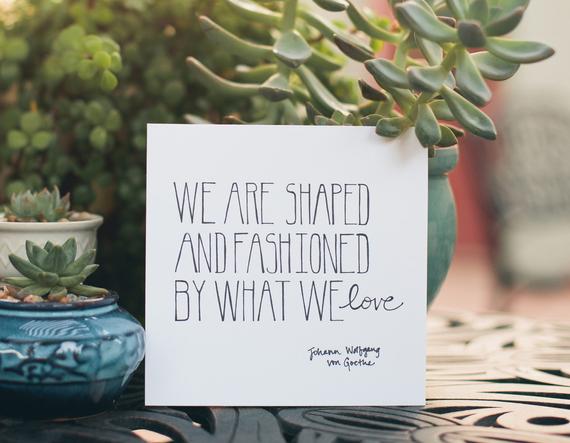 WE ARE SHAPED
AND FASHIONED
BY WHAT WE love
Johann Wolfgang
von Goethe